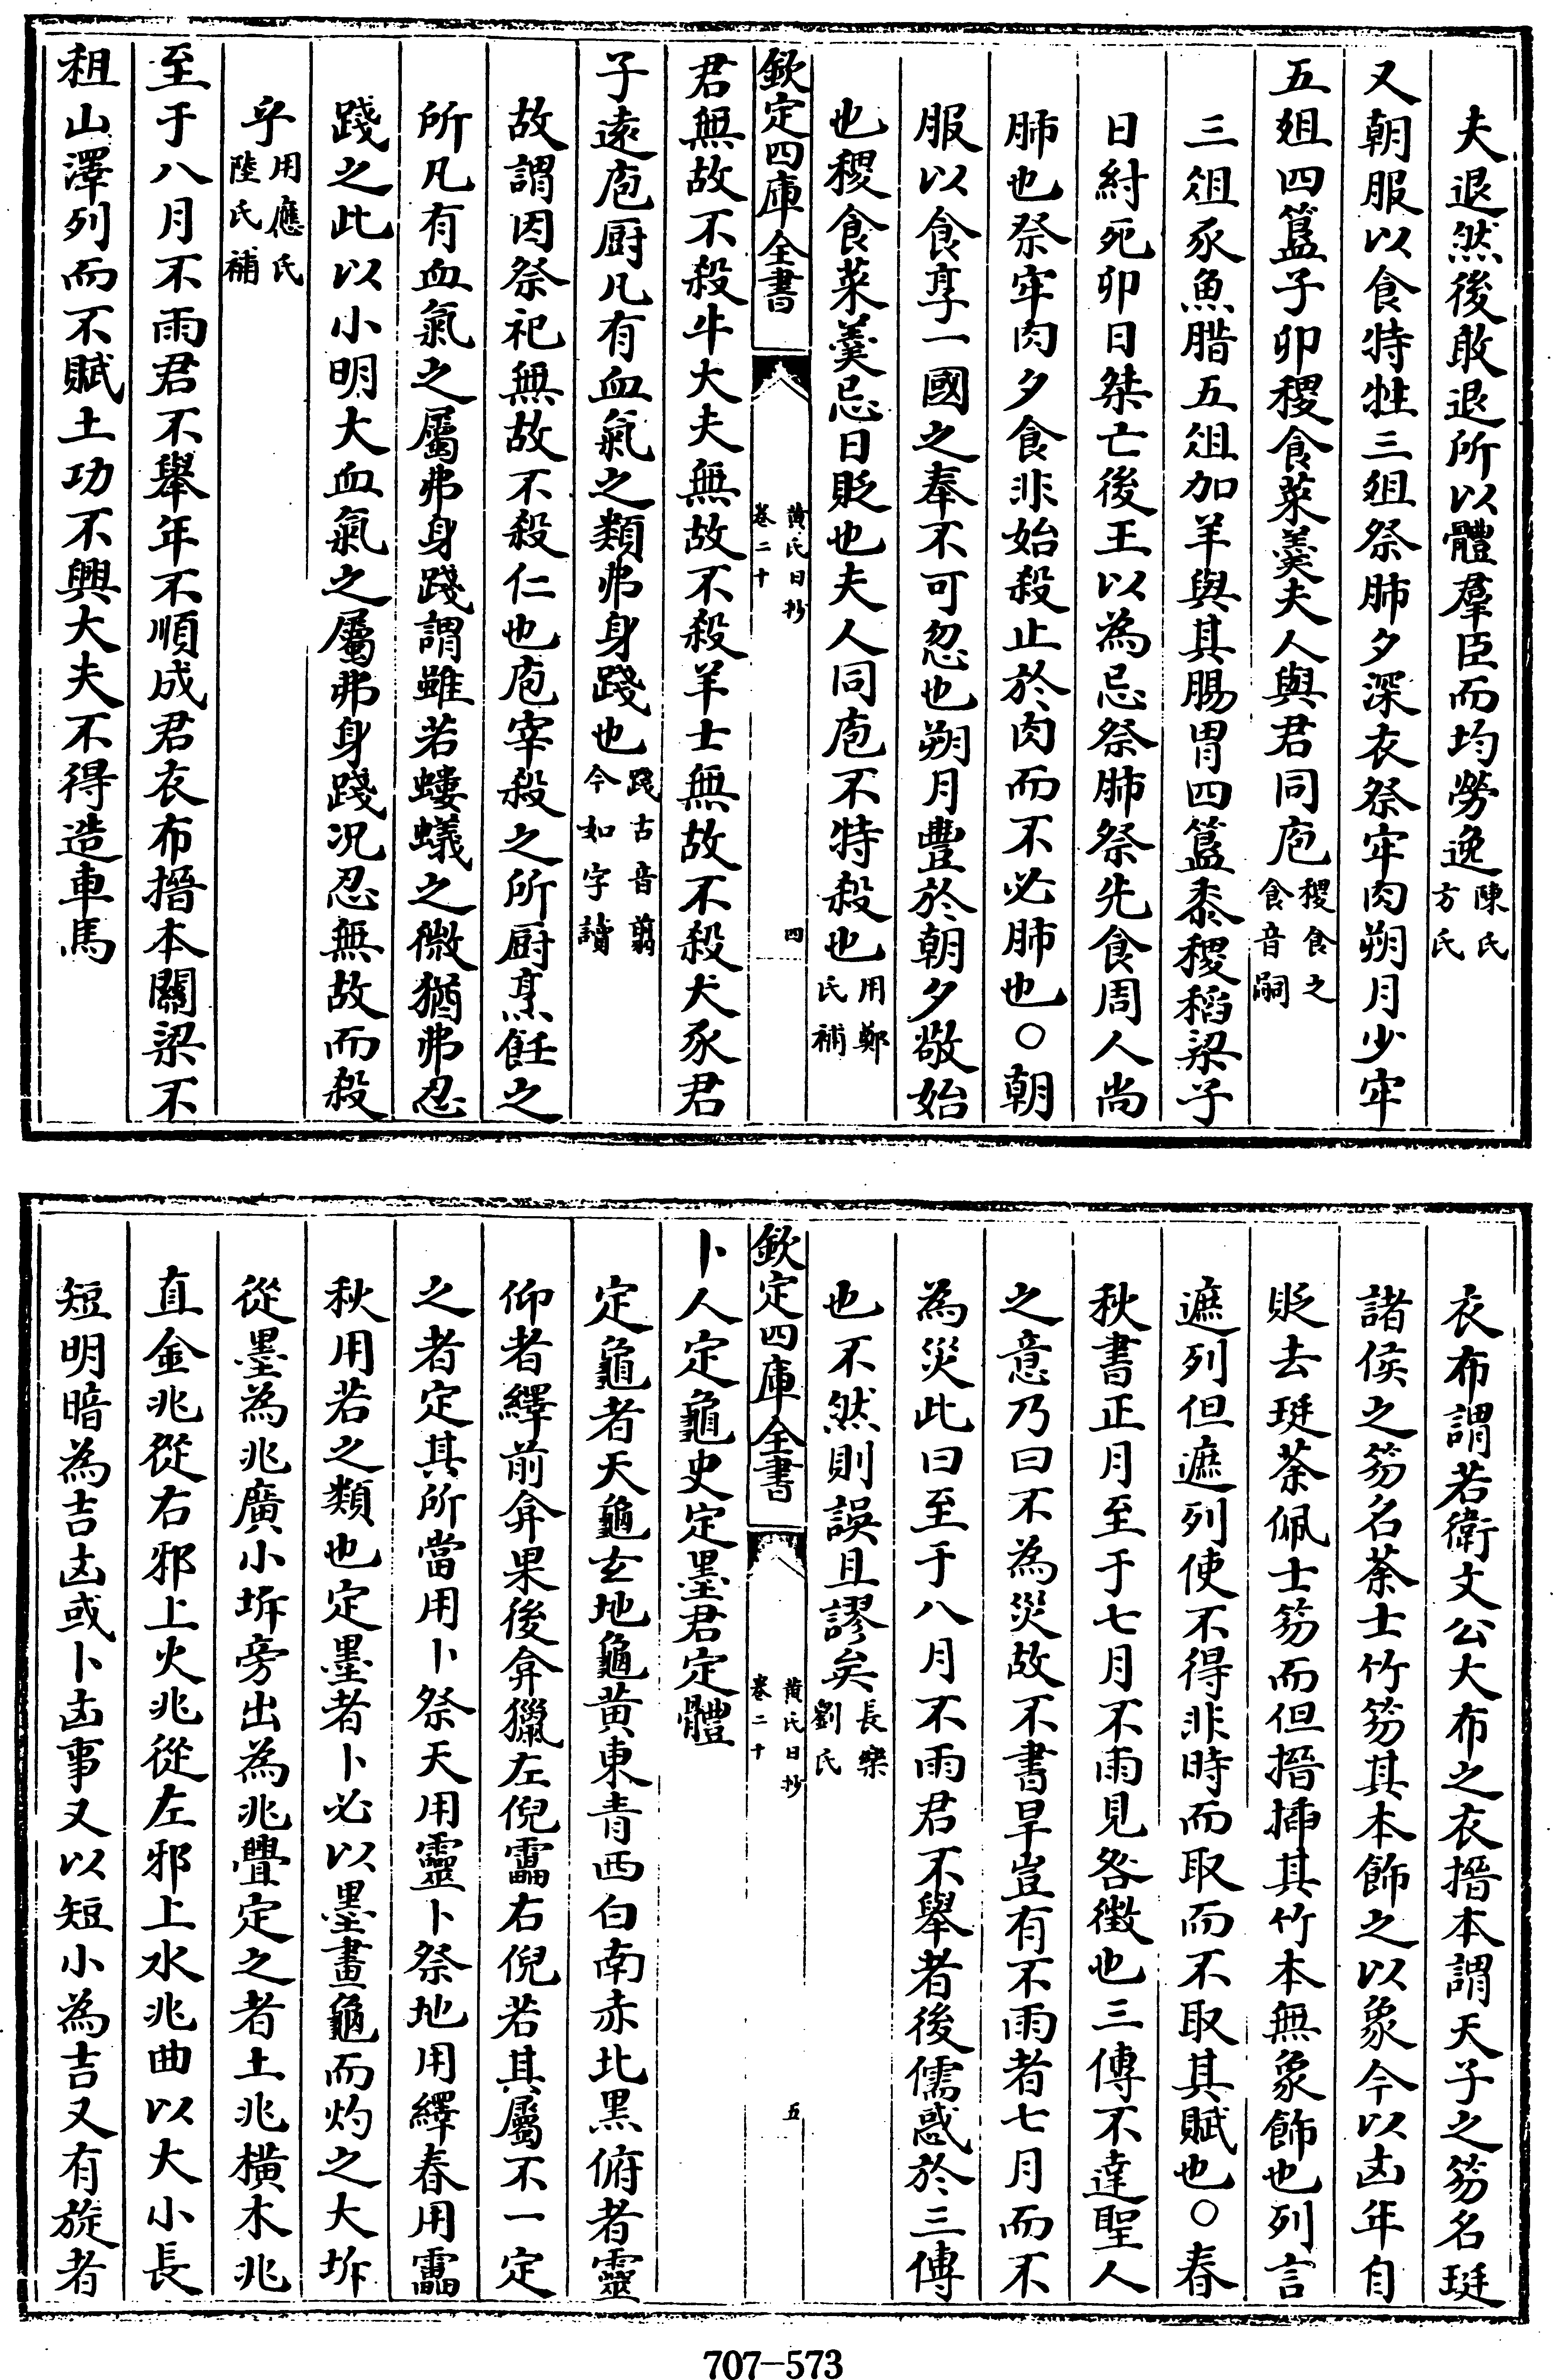 夫退然後敢退所以體羣臣而均勞逸陳氏方氏
又朝服以食特牲三俎祭肺夕深衣祭牢肉朔月少牢
五俎四簋子卯稷食菜羹夫人與君同庖稷食之食音嗣
三俎豕魚腊五俎加羊與其腸胃四簋黍稷稻梁子
日紂死卯日桀亡後王以為忌祭肺祭先食周人尚
肺也祭牢肉夕食非始殺止於肉而不必肺也○朝
服以食享一國之奉不可忽也朔月豐於朝夕敬始
也稷食菜羹忌日貶也夫人同庖不特殺也用鄭氏補
欽定四庫全書 黄氏日抄卷二十 四
君無故不殺牛大夫無故不殺羊士無故不殺犬豕君
子遠庖厨凡有血氣之類弗身踐也踐古音翦今如字讀
故謂因祭祀無故不殺仁也庖宰殺之所厨烹飪之
所凡有血氣之屬弗身踐謂雖若螻蟻之微猶弗忍
踐之此以小明大血氣之屬弗身踐况忍無故而殺
乎用應氏陸氏補
至于八月不雨君不舉年不順成君衣布搢本關梁不
租山澤列而不賦土功不興大夫不得造車馬
衣布謂若衛文公大布之衣搢本謂天子之笏名珽
諸侯之笏名荼士竹笏其本飾之以象今以凶年自
貶去珽荼佩士笏而但搢插其竹本無象飾也列言
遮列但遮列使不得非時而取而不取其賦也○春
秋書正月至于七月不雨見咎徵也三傳不達聖人
之意乃曰不為災故不書旱豈有不雨者七月而不
為災此曰至于八月不雨君不舉者後儒惑於三傳
也不然則誤且謬矣長樂劉氏
欽定四庫全書 黄氏日抄卷二十 五
卜人定龜史定墨君定體
定龜者天龜玄地龜黄東青西白南赤北黑俯者靈
仰者繹前弇果後弇獵左倪靁右倪若其屬不一定
之者定其所當用卜祭天用靈卜祭地用繹春用靁
秋用若之類也定墨者卜必以墨畫龜而灼之大坼
從墨為兆廣小坼旁出為兆舋定之者土兆橫木兆
直金兆從右邪上火兆從左邪上水兆曲以大小長
短明暗為吉凶或卜凶事又以短小為吉又有旋者
707-573